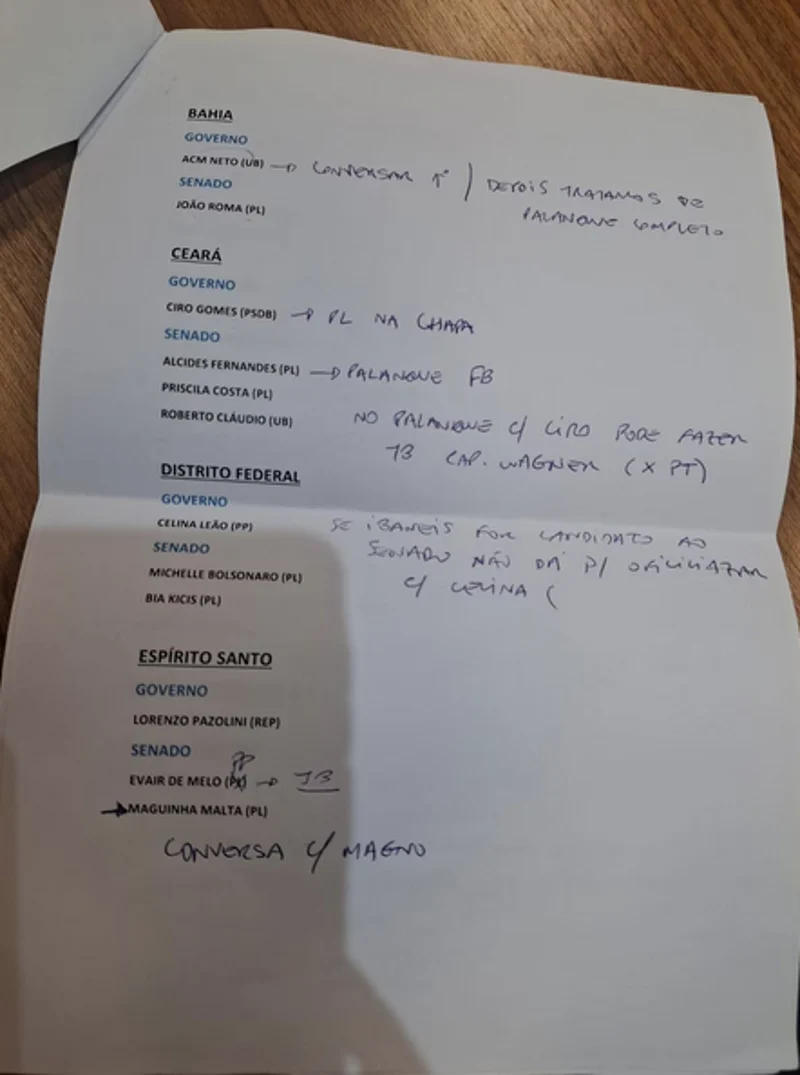 BAHIA
GOVERNO
ACM NETO (UB) → CONVERSAR 1º / DEPOIS TRATAMOS DE
PALANQUE COMPLETO
SENADO
JOÃO ROMA (PL)
CEARÁ
GOVERNO
CIRO GOMES (PSDB) → PL NA CHAPA
SENADO
ALCIDES FERNANDES (PL) → PALANQUE FB
PRISCILA COSTA (PL)
ROBERTO CLÁUDIO (UB)
NO PALANQUE C/ CIRO PODE FAZER
CAP. WAGNER (X PT)
DISTRITO FEDERAL
GOVERNO
CELINA LEÃO (PP)
SE IBANEIS FOR CANDIDATO AO
SENADO NÃO DÁ P/
C/ CELINA (
SENADO
MICHELLE BOLSONARO (PL)
BIA KICIS (PL)
ESPÍRITO SANTO
GOVERNO
LORENZO PAZOLINI (REP)
SENADO
PP
EVAIR DE MELO → JB
→ MAGUINHA MALTA (PL)
CONVERSA C/ MAGNO